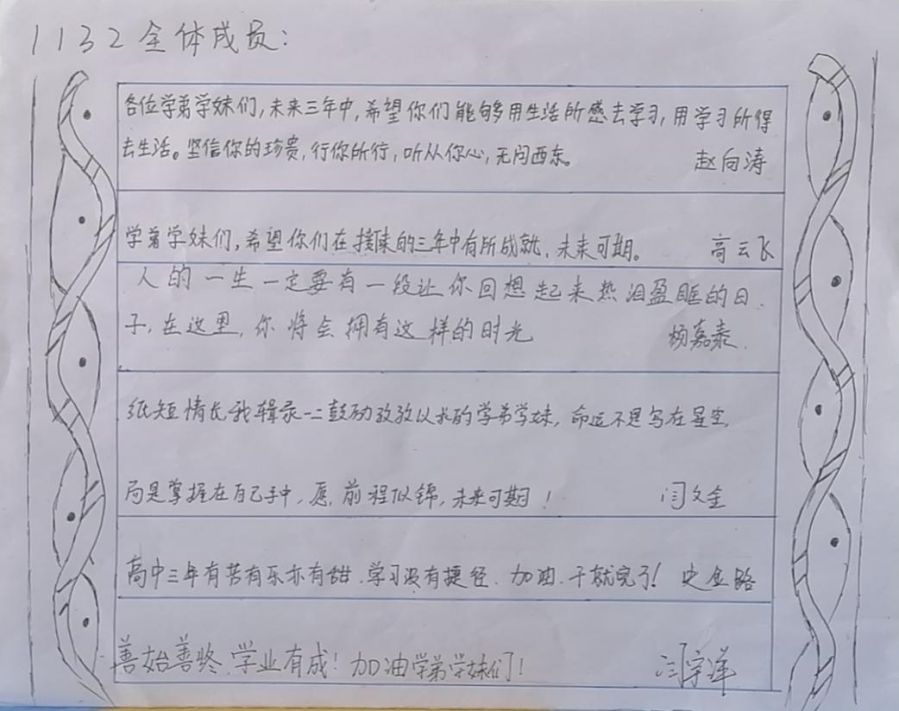 1132全体成员:
各位学弟学妹们,未来三年中,希望你们能够用生活所感去学习,用学习所得
去生活。坚信你的珍贵,行你所行,听从你心,无问西东。 赵向涛
学弟学妹们,希望你们在接下来的三年中有所成就,未来可期。 高云飞
人的一生一定要有一段让你回想起来热泪盈眶的日
子,在这里,你将会拥有这样的时光 杨嘉泰
纸短情长我辑录一二鼓励孜孜以求的学弟学妹,命运不是写在星空,
而是掌握在自己手中,愿,前程似锦,未来可期! 闫文金
高中三年有苦有乐亦有甜.学习没有捷径.加油.干就完了! 史金路
善始善终.学业有成!加油学弟学妹们! 闫宇洋